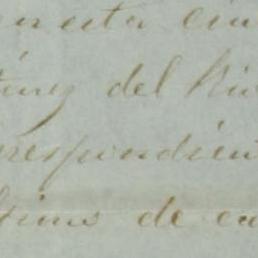 en esta ciu
tinez del Rio
rrespondien
ltimo de en